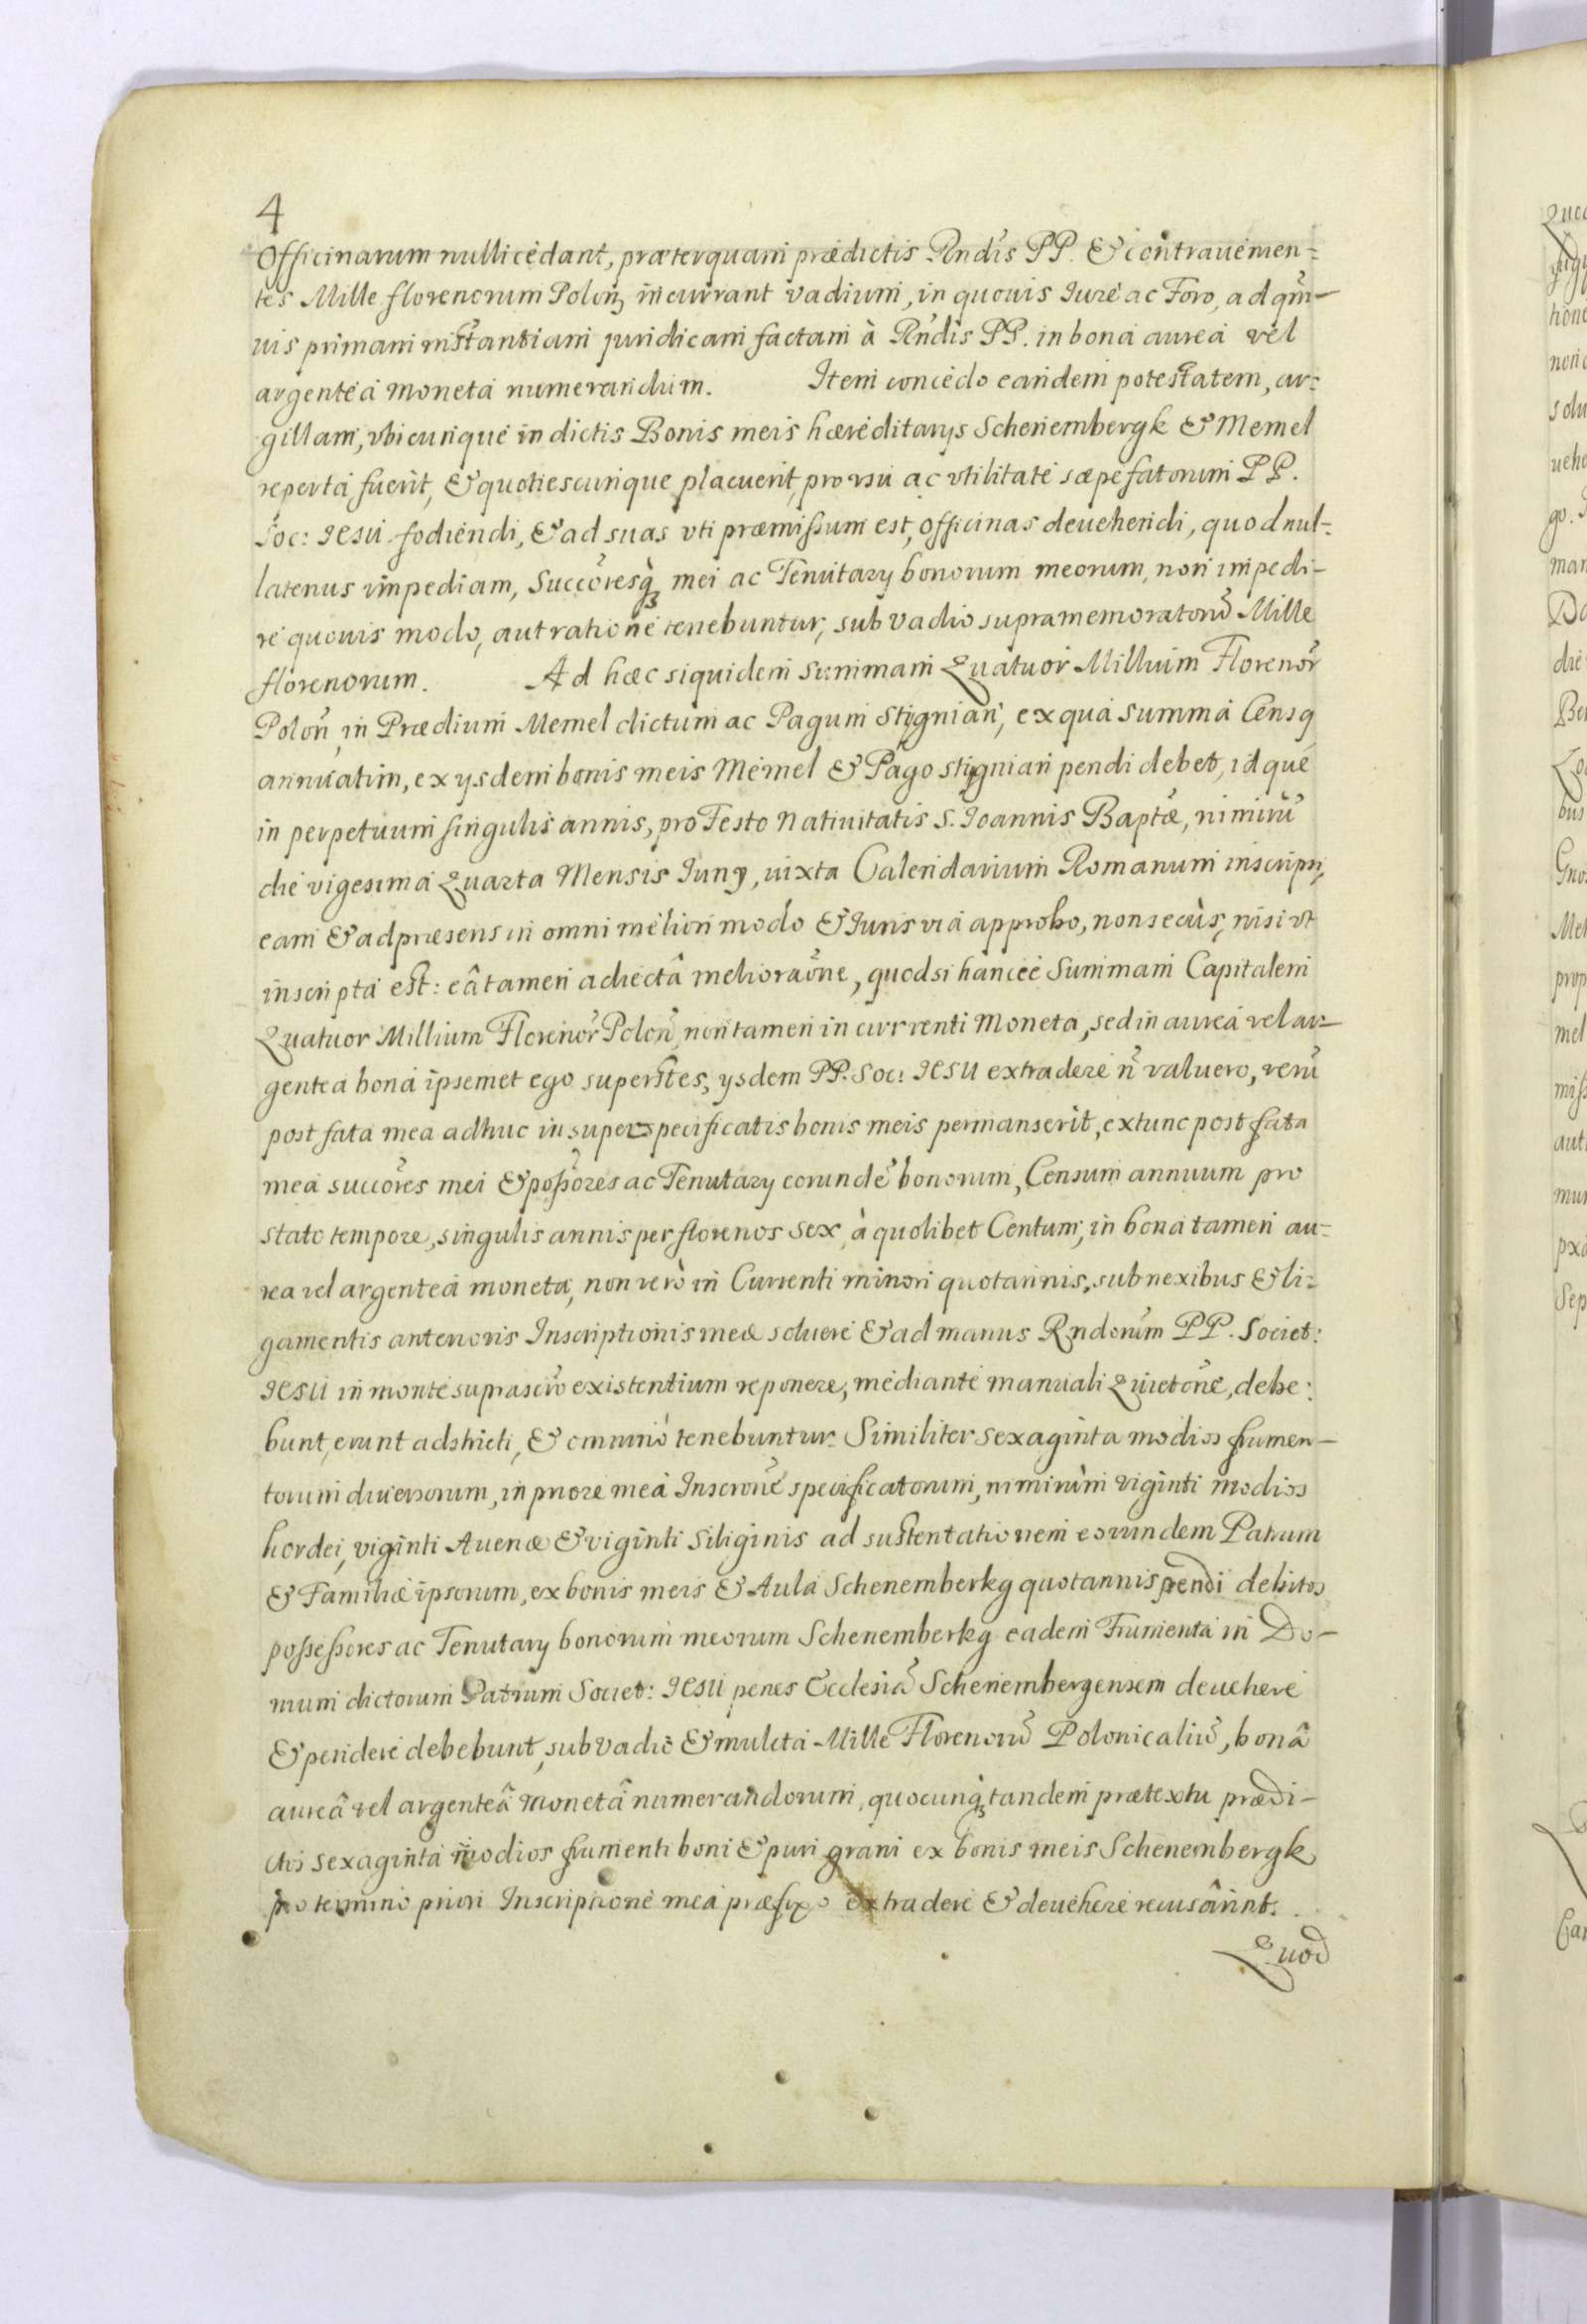 4
Officinarum nulli cedant, præterquam prædictis Rndis PP. & contravenien-
tes Mille florenorum Polon, incurrant vadium, in quouis Iure ac Foro, ad quā-
uis primam instantiam juridicam factam à Rndis PP. in bona aurea vel
argentea moneta numerandum. Item concedo eandem potestatem, ar:
gillam, vbicunque in dictis Bonis meis hæreditarys Schenembergk & Memel
reperta fuerit, & quotiescunque placuerit, pro vsu ac vtilitate sæpefatorum PP.
Soc: IESU fodiendi, & ad suas vti præmissum est, officinas deuehendi, quod nul-
latenus impediam, Succoresq3 mei ac Tenutary bonorum meorum, non impedi-
re quouis modo, aut ratione tenebuntur, sub vadio supramemoratorū Mille
florenorum. Ad hæc siquidem summam Quatuor Millium Florenor
Polon, in Prædium Memel dictum ac Pagum Stignian, ex qua summa Censq
annuatim, ex ysdem bonis meis Memel & Pago Stignian pendi debet, idque
in perpetuum singulis annis, pro Festo Natiuitatis S. Ioannis Baptæ, nimirū
die vigesima Quarta Mensis Iuny, iuxta Calendarium Romanum inscripsi,
eam & ad præsens in omni meliori modo & Iuris via approbo, non secùs, nisi vt
inscripta est: eâ tamen adiectâ melioraōne, quod si hancce Summam Capitalem
Quatuor Millium Florenor Polon, non tamen in currenti Moneta, sed in aurea vel ar-
gentea bona ipsemet ego superstes, ysdem PP. Soc: IESU extradere n̄ valuero, verū
post fata mea adhuc in superspecificatis bonis meis permanserit, extunc post fata
mea succores mei & possores ac Tenutary eorundē bonorum, Censum annuum pro
stato tempore, singulis annis per florenos sex, à quolibet Centum, in bona tamen au-
rea vel argentea moneta, non verò in Currenti minori quotannis, sub nexibus & li:
gamentis anterioris Inscriptionis meæ soluere & ad manus Rndorum PP. Societ:
IESU in monte suprascro existentium reponere, mediante manuali Quietōne, debe:
bunt, erunt adstricti, & omnino tenebuntur. Similiter sexaginta modios frumen-
torum diuersorum, in priore mea Inscrone specificatorum, nimirùm viginti modios
hordei, viginti Auenæ & viginti Siliginis ad sustentationem eorundem Patrum
& Familiæ ipsorum, ex bonis meis & Aula Schenemberkg quotannis pendi debitos
possessores ac Tenutary bonorum meorum Schenemberkg eadem Frumenta in Do-
mum dictorum Patrum Societ: IESU penes Ecclesiā Schenembergensem deuehere
& pendere debebunt, sub vadio & mulcta Mille Florenorū Polonicaliū, bonâ
aureâ vel argenteâ monetâ numerandorum, quocunq3 tandem prætextu prædi-
ctos sexaginta modios frumenti boni & puri grani ex bonis meis Schenembergk
pro termino priori Inscriptione mea præfixo extradere & deuehere recusârint.
Quod